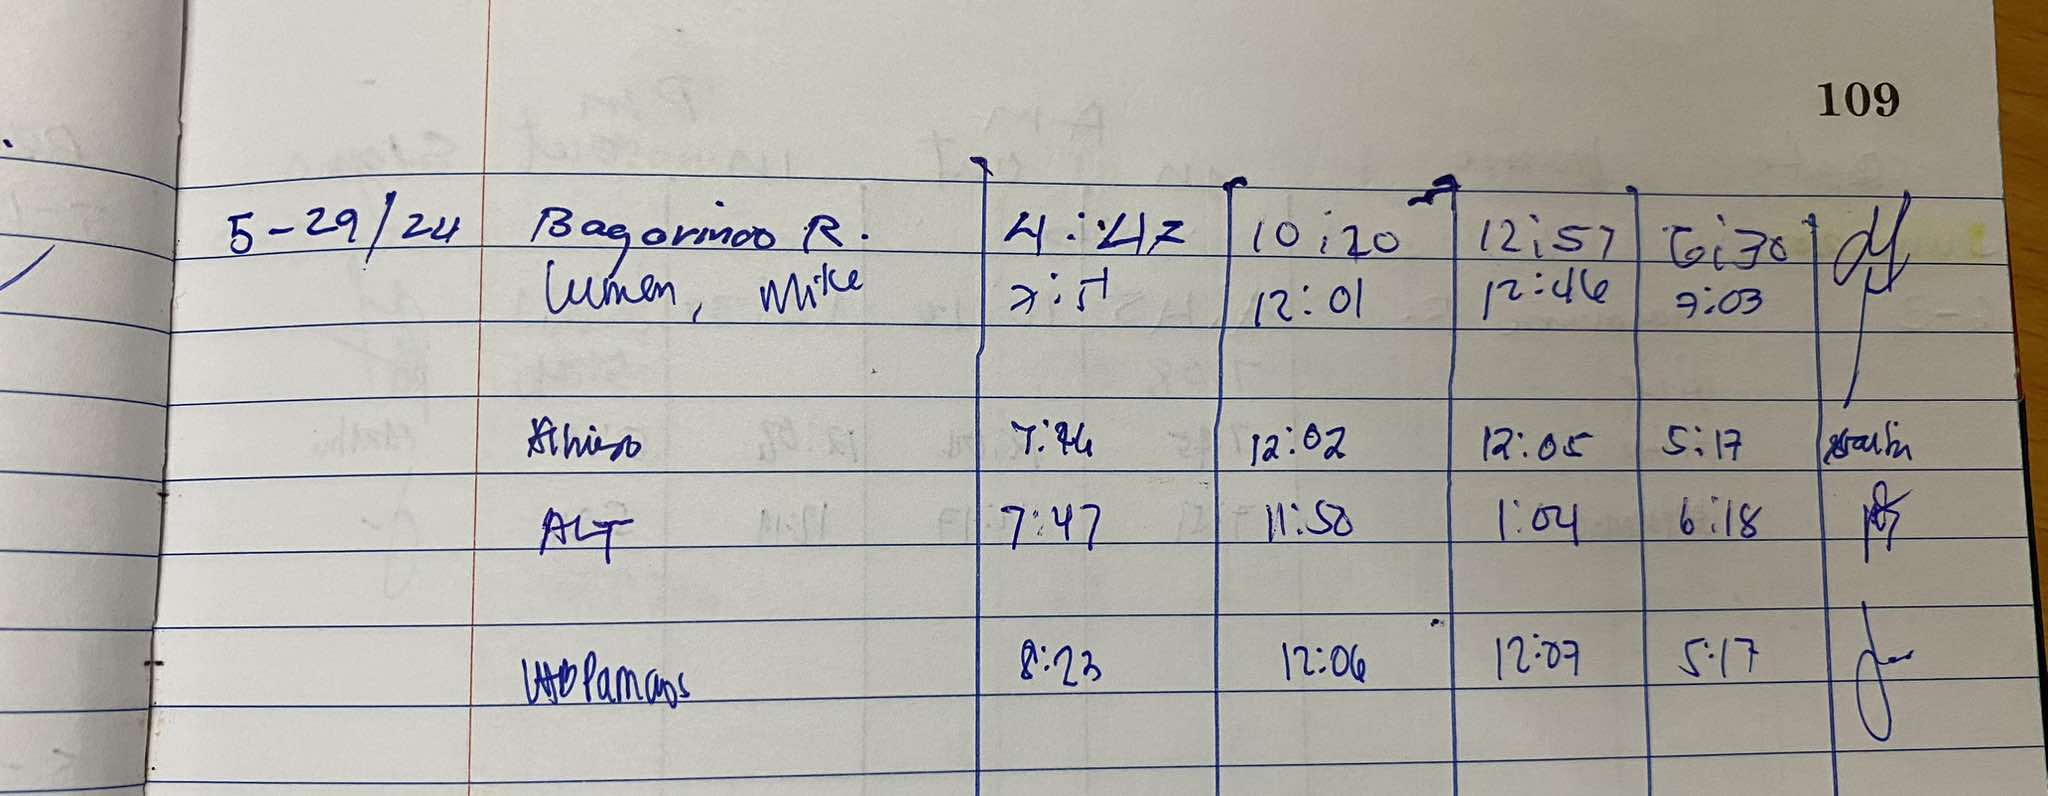 109
5-29/24 Bagorinoo R. 4:47 10:20 12:57 6:30
Lumen, Mike 7:51 12:01 12:46 7:03
12:02 12:05 5:17
ALT 7:47 11:50 1:04 6:18
8:23 12:06 12:07 5:17